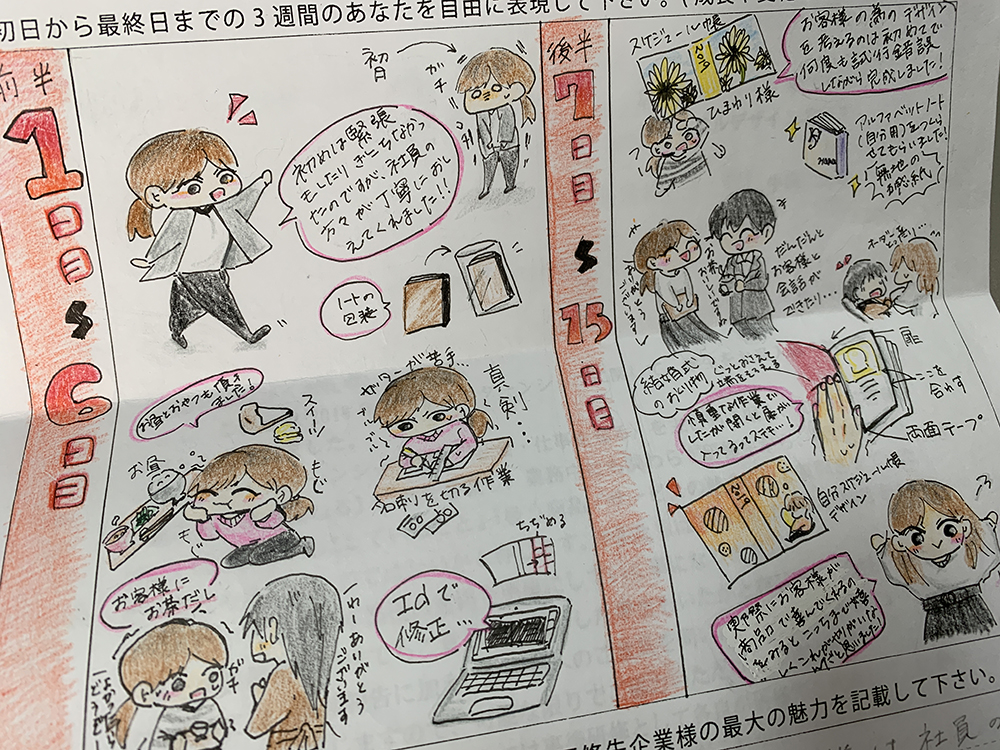 初日から最終日までの3週間のあなたを自由に表現して下さい。
前半
1日目
6日目
初日
ガチ
初めは緊張
もしたりぎこちなかっ
たのですが、社員の
方々が丁寧におし
えてくれました!!
ノートの
包装
お昼とおやつも頂き
ました!
スイーツ
お昼
もぐ
もぐ
カッターが苦手…
真剣…
名刺を切る作業
お客様に
お茶だし
ガチ
わーありがとう
ございます
ちぢめる
Idで
修正…
後半
7日目
15日目
スケジュール帳
2019
ひまわり様
お客様の為のデザイン
を考えるのは初めてで
何度も試行錯誤
しながら完成しました!
アルファベットノート
(自分用)をつくら
せてもらいました!
無地の
お恋紙
ありがとうございます
お茶おいしいですね
だんだんと
お客様と
会話が
できたり…
結婚式
のおくり物
慎重な作業で
したが開くと扉が
入ってるってステキ…!
扉
ここを
合わす
両面テープ
2019
自分スケジュール帳
デザイン
実際にお客様が
商品で喜んでくれるの
をみると
こっちまで嬉
しくこれがやりがいな
んだと思いました
修先企業様の最大の魅力を記載して下さい。
社員の